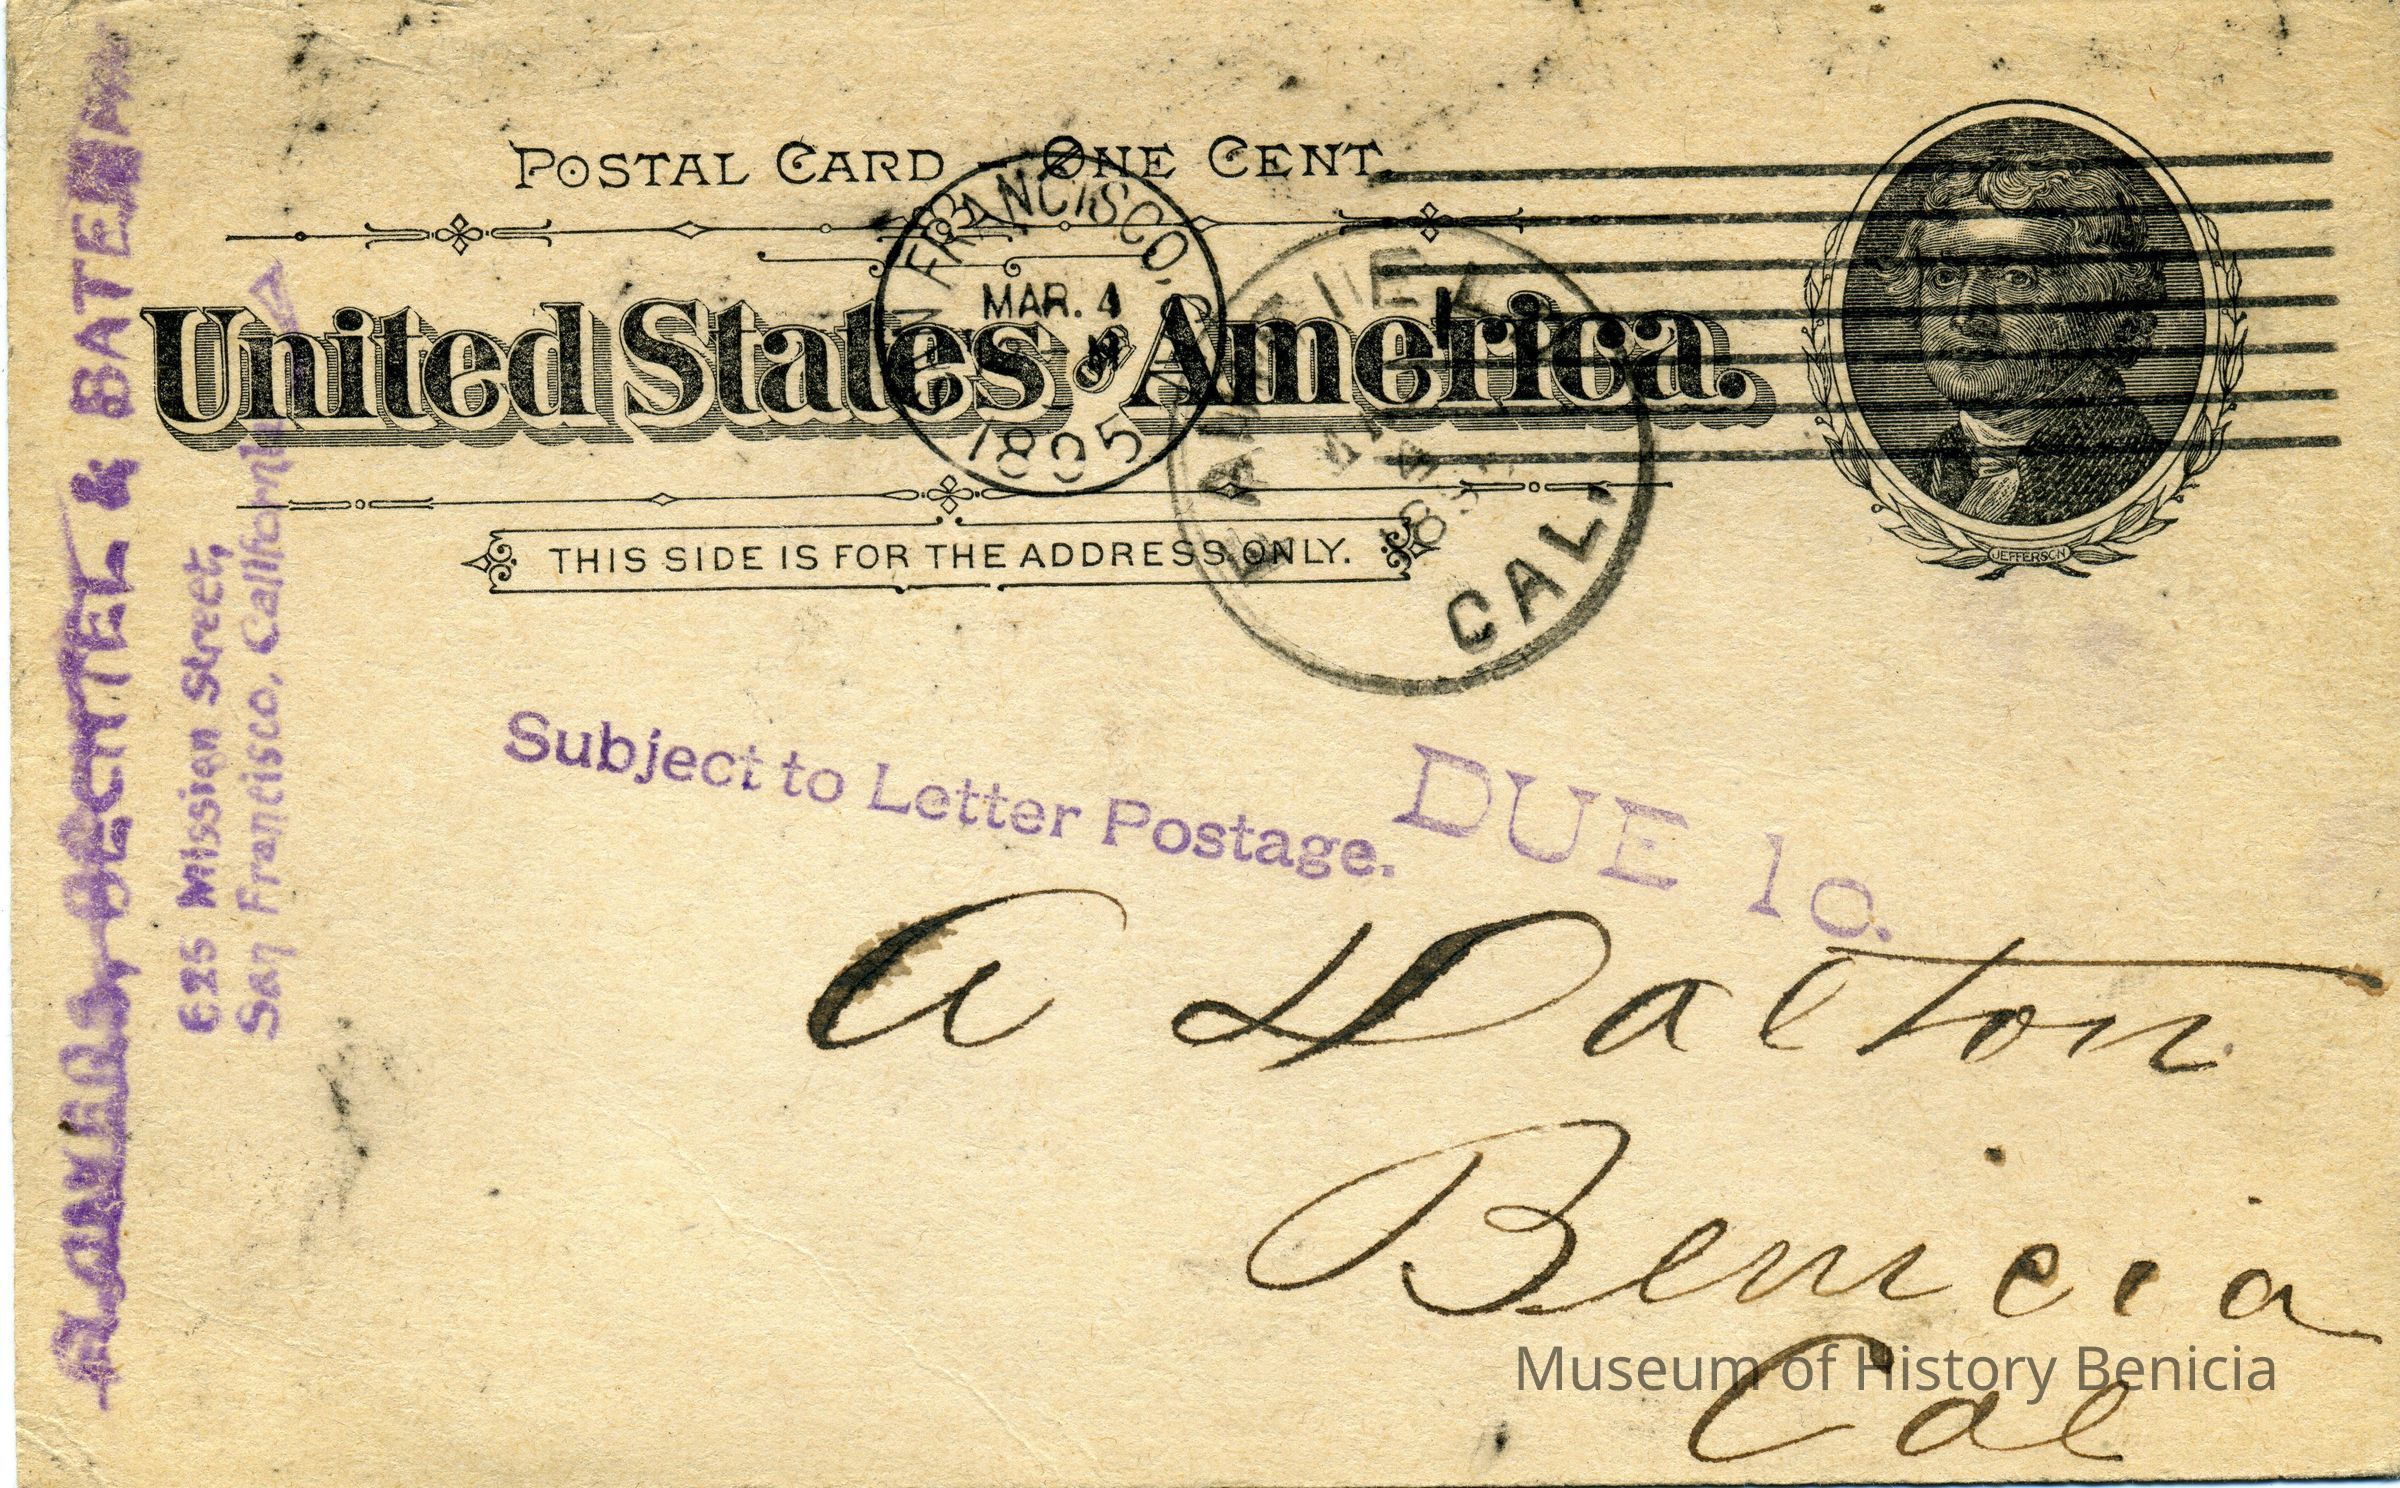 POSTAL CARD – ONE CENT.
United States of America.
THIS SIDE IS FOR THE ADDRESS ONLY.
JEFFERSON
SAN FRANCISCO,
MAR. 4
1895
CAL.
& BATEMAN
625 Mission Street,
San Francisco, California
Subject to Letter Postage.
DUE 1c.
A Dalton
Benicia
Cal
Museum of History Benicia